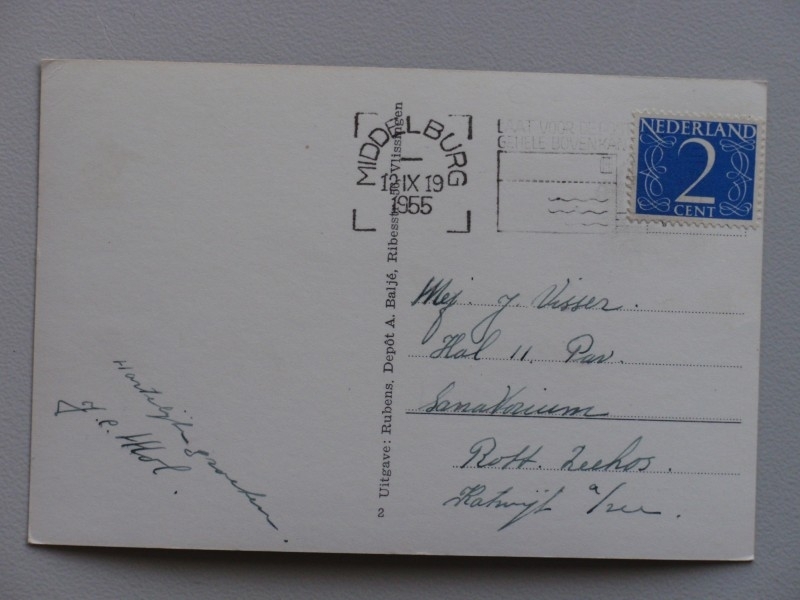 MIDDELBURG
12 IX 19
1955
LAAT VOOR
GEHELE BOVENKANT
NEDERLAND
2
CENT
Uitgave: Rubens, Depôt A. Baljé, Ribesstr. Vlissingen
2
Mej. J. Visser.
Hal 11. Pav.
Sanatorium
Rott. Zeehos.
Katwijk a/zee.
Hartelijke groeten
J. C. Mol.